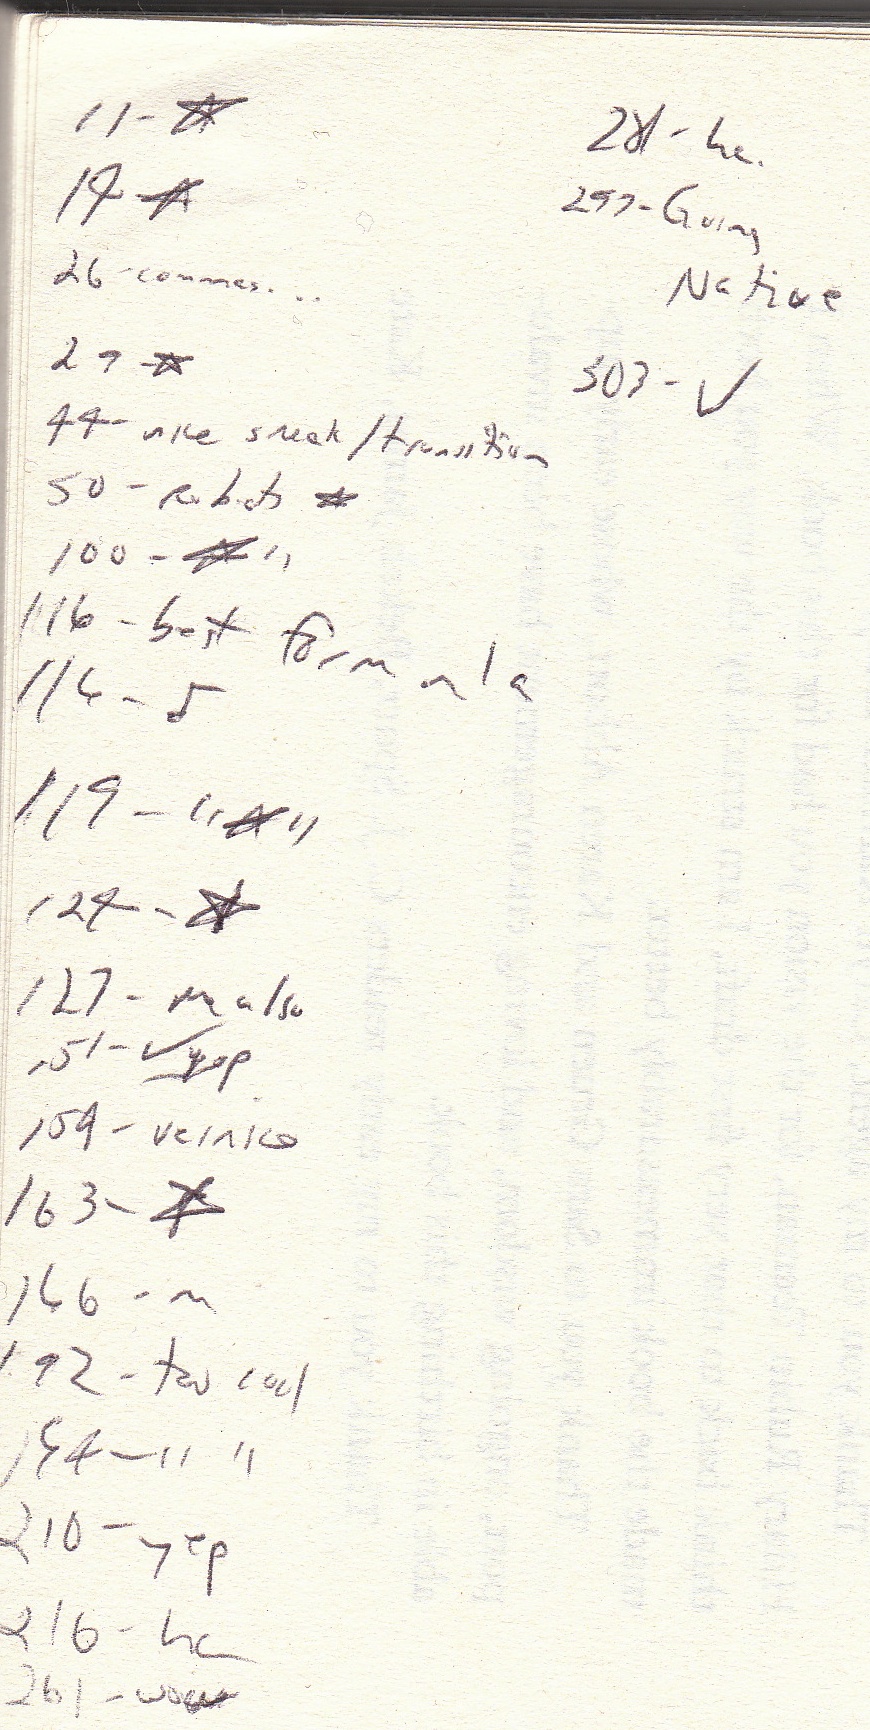 11-☆
14-☆
26-commas...
29-☆
44-nice sneak/transition
50-robots ☆
100-☆"
116-best formula
116-5
119-"☆"
124-☆
127-me also
151-✓yep
159-
163-☆
166-m
192-too cool
194-" "
210-yep
216-ha
261-wow
281-ha.
297-Going
Native
303-✓